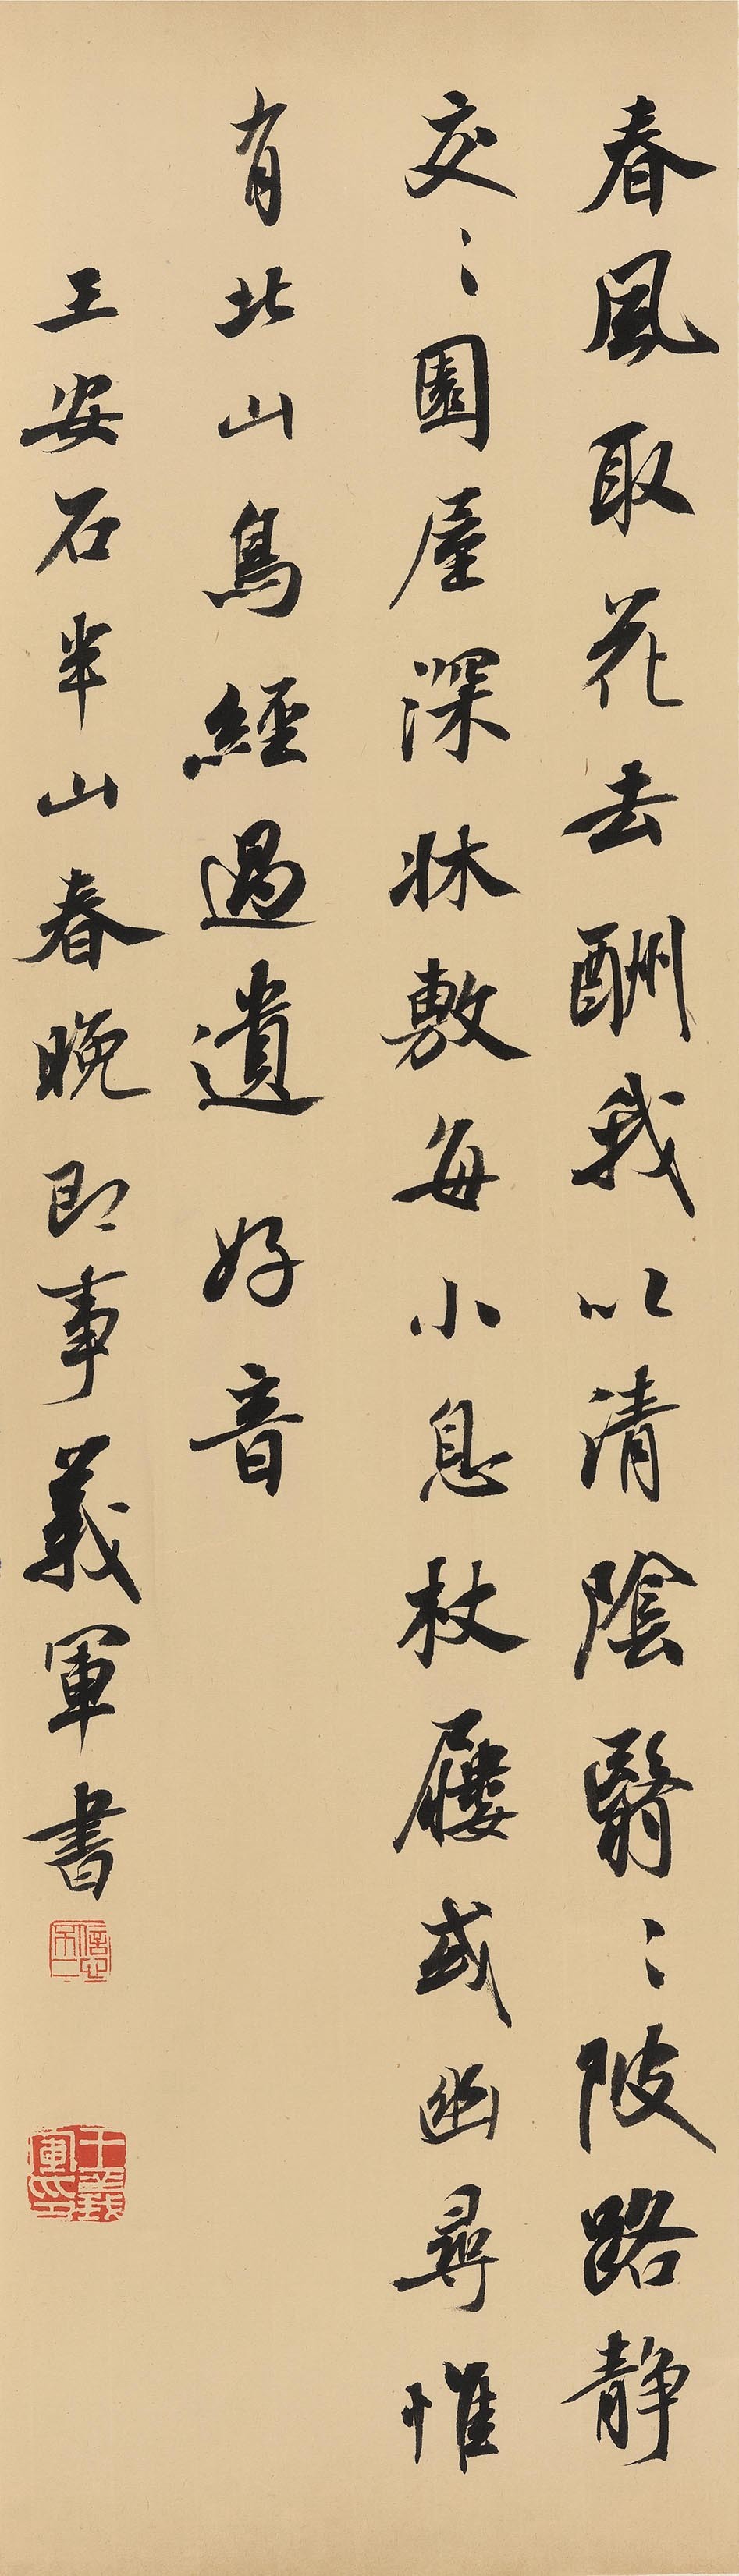 春風取花去酬我以清陰翳〻陂路静
交〻園屋深牀敷每小息杖屨或幽尋惟
有北山鳥經過遺好音
王安石半山春晚即事義軍書
信心不二
王義軍印